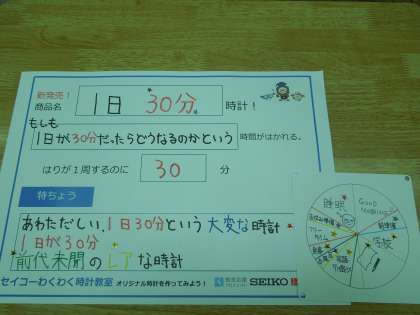 新発売！
商品名 1日 30分 時計！
もしも
1日が30分だったらどうなるのかという 時間がはかれる。
はりが1周するのに 30 分
特ちょう
あわただしい、1日30分という大変な時計
1日が30分
前代未聞のレアな時計
セイコーわくわく時計教室 オリジナル時計を作ってみよう! SEIKO
睡眠
GOOD MORNING
学校
フリータイム